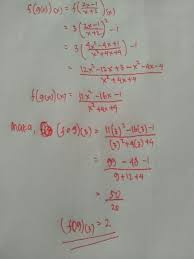 f(g)(x) = f(2x-1/x+2)
= 3(2x-1/x+2)² - 1
= 3(4x²-4x+1/x²+4x+4) - 1
= 12x²-12x+3-x²-4x-4/x²+4x+4
f(g(x))(x) = 11x²-16x-1/x²+4x+4
maka, (fog)(3) = 11(3)²-16(3)-1/(3)²+4(3)+4
= 99-48-1/9+12+4
= 50/25
(fog)(3) = 2